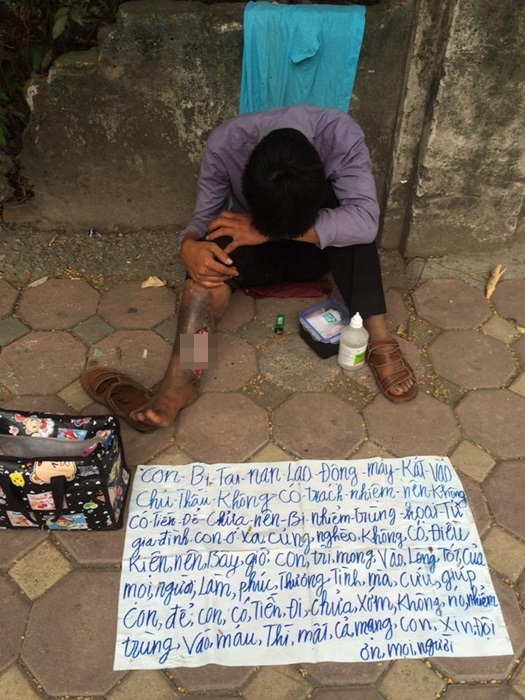 Con-Bị-Tai-nạn Lao-Động-máy-Kắt-Vào
Chủ-Thầu-Không-Có-Trách-nhiệm-nên-Không
Có-tiền-Để-Chữa-nên-Bị-nhiễm-trùng-hoại-Tử
gia đình con ở Xa, cũng nghèo, Không, Có, Điều
Kiện, nên, Bây, giờ, con, trỉ, mong, Vào, Lòng Tốt, Của
mọi, người, Làm, phúc, Thương, Tình, mà, Cứu, giúp
Con, để, con, có, Tiền, Đi, Chữa, Xớm, Không, nó, nhiễm
trùng, Vào, máu, Thì, mất, cả, mạng, Con, Xin, Đội
ơn, mọi, người